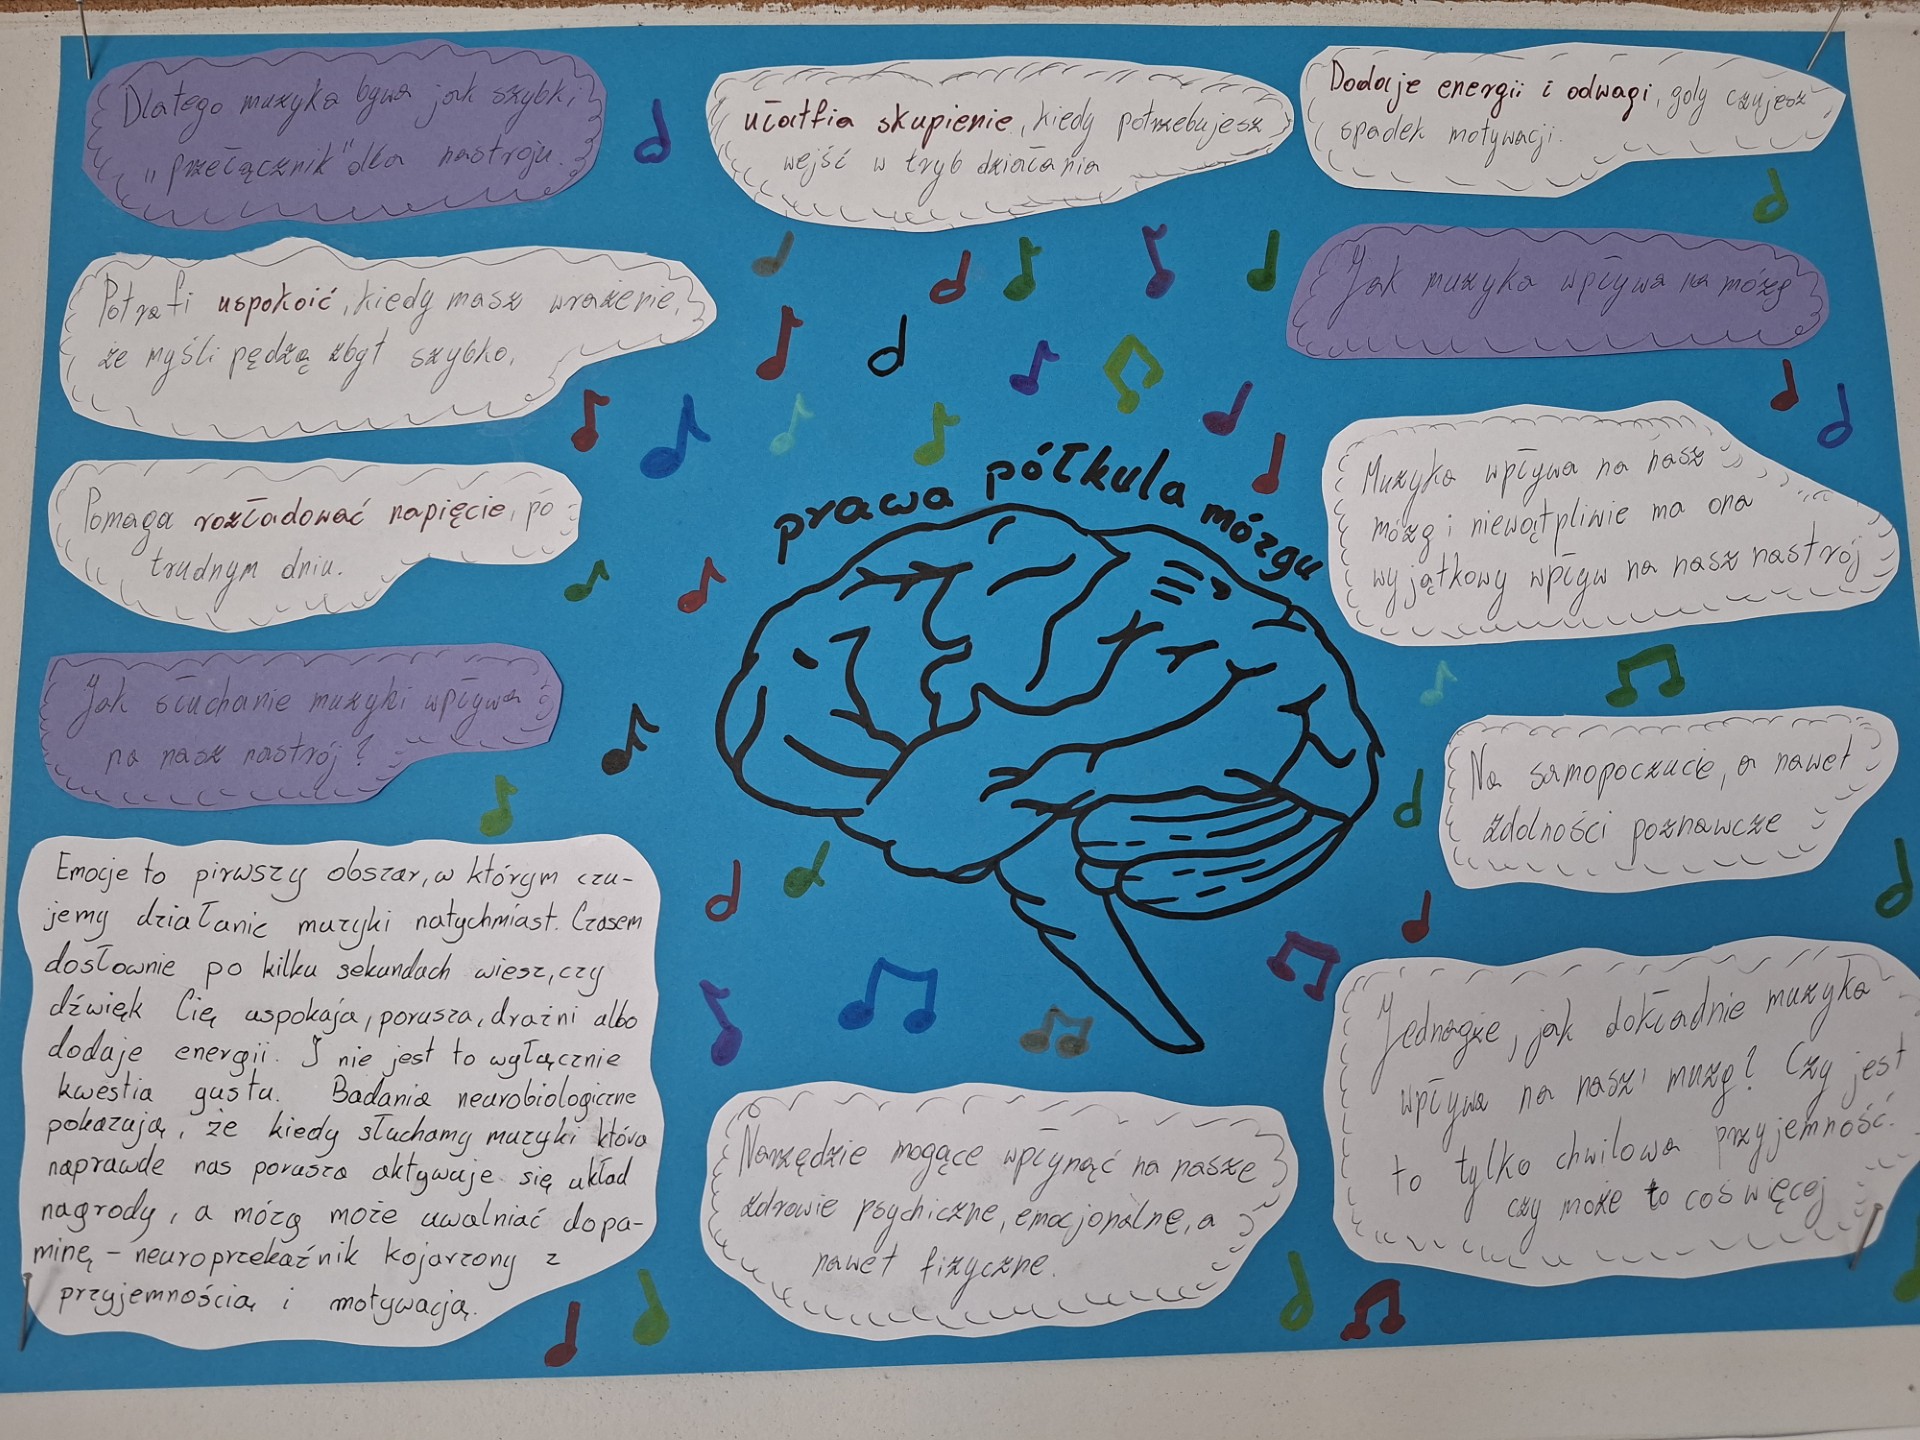 Dlatego muzyka bywa jak szybki
„przełącznik" dla nastroju.
ułatfia skupienie, kiedy potrzebujesz
wejść w tryb działania
Dodaje energii i odwagi, gdy czujesz
spadek motywacji.
Potrafi uspokoić, kiedy masz wrażenie,
że myśli pędzą zbyt szybko.
Jak muzyka wpływa na mózg
Pomaga rozładować napięcie, po
trudnym dniu.
prawa półkula mózgu
Muzyka wpływa na nasz
mózg i niewątpliwie ma ona
wyjątkowy wpływ na nasz nastrój
Jak słuchanie muzyki wpływa
na nasz nastrój?
Na samopoczucie, a nawet
zdolności poznawcze
Emocje to pirwszy obszar, w którym czu-
jemy działanie muzyki natychmiast. Czasem
dosłownie po kilku sekundach wiesz, czy
dźwięk Cię uspokaja, porusza, drażni albo
dodaje energii. I nie jest to wyłącznie
kwestia gustu. Badania neurobiologiczne
pokazują, że kiedy słuchamy muzyki która
naprawde nas porusza aktywuje się układ
nagrody, a mózg może uwalniać dopa-
minę - neuroprzekaźnik kojarzony z
przyjemnością i motywacją.
Narzędzie mogące wpłynąć na nasze
zdrowie psychiczne, emocjonalne, a
nawet fizyczne.
Jednagże, jak dokładnie muzyka
wpływa na nasz muzg? Czy jest
to tylko chwilowa przyjemność.
czy może to coś więcej